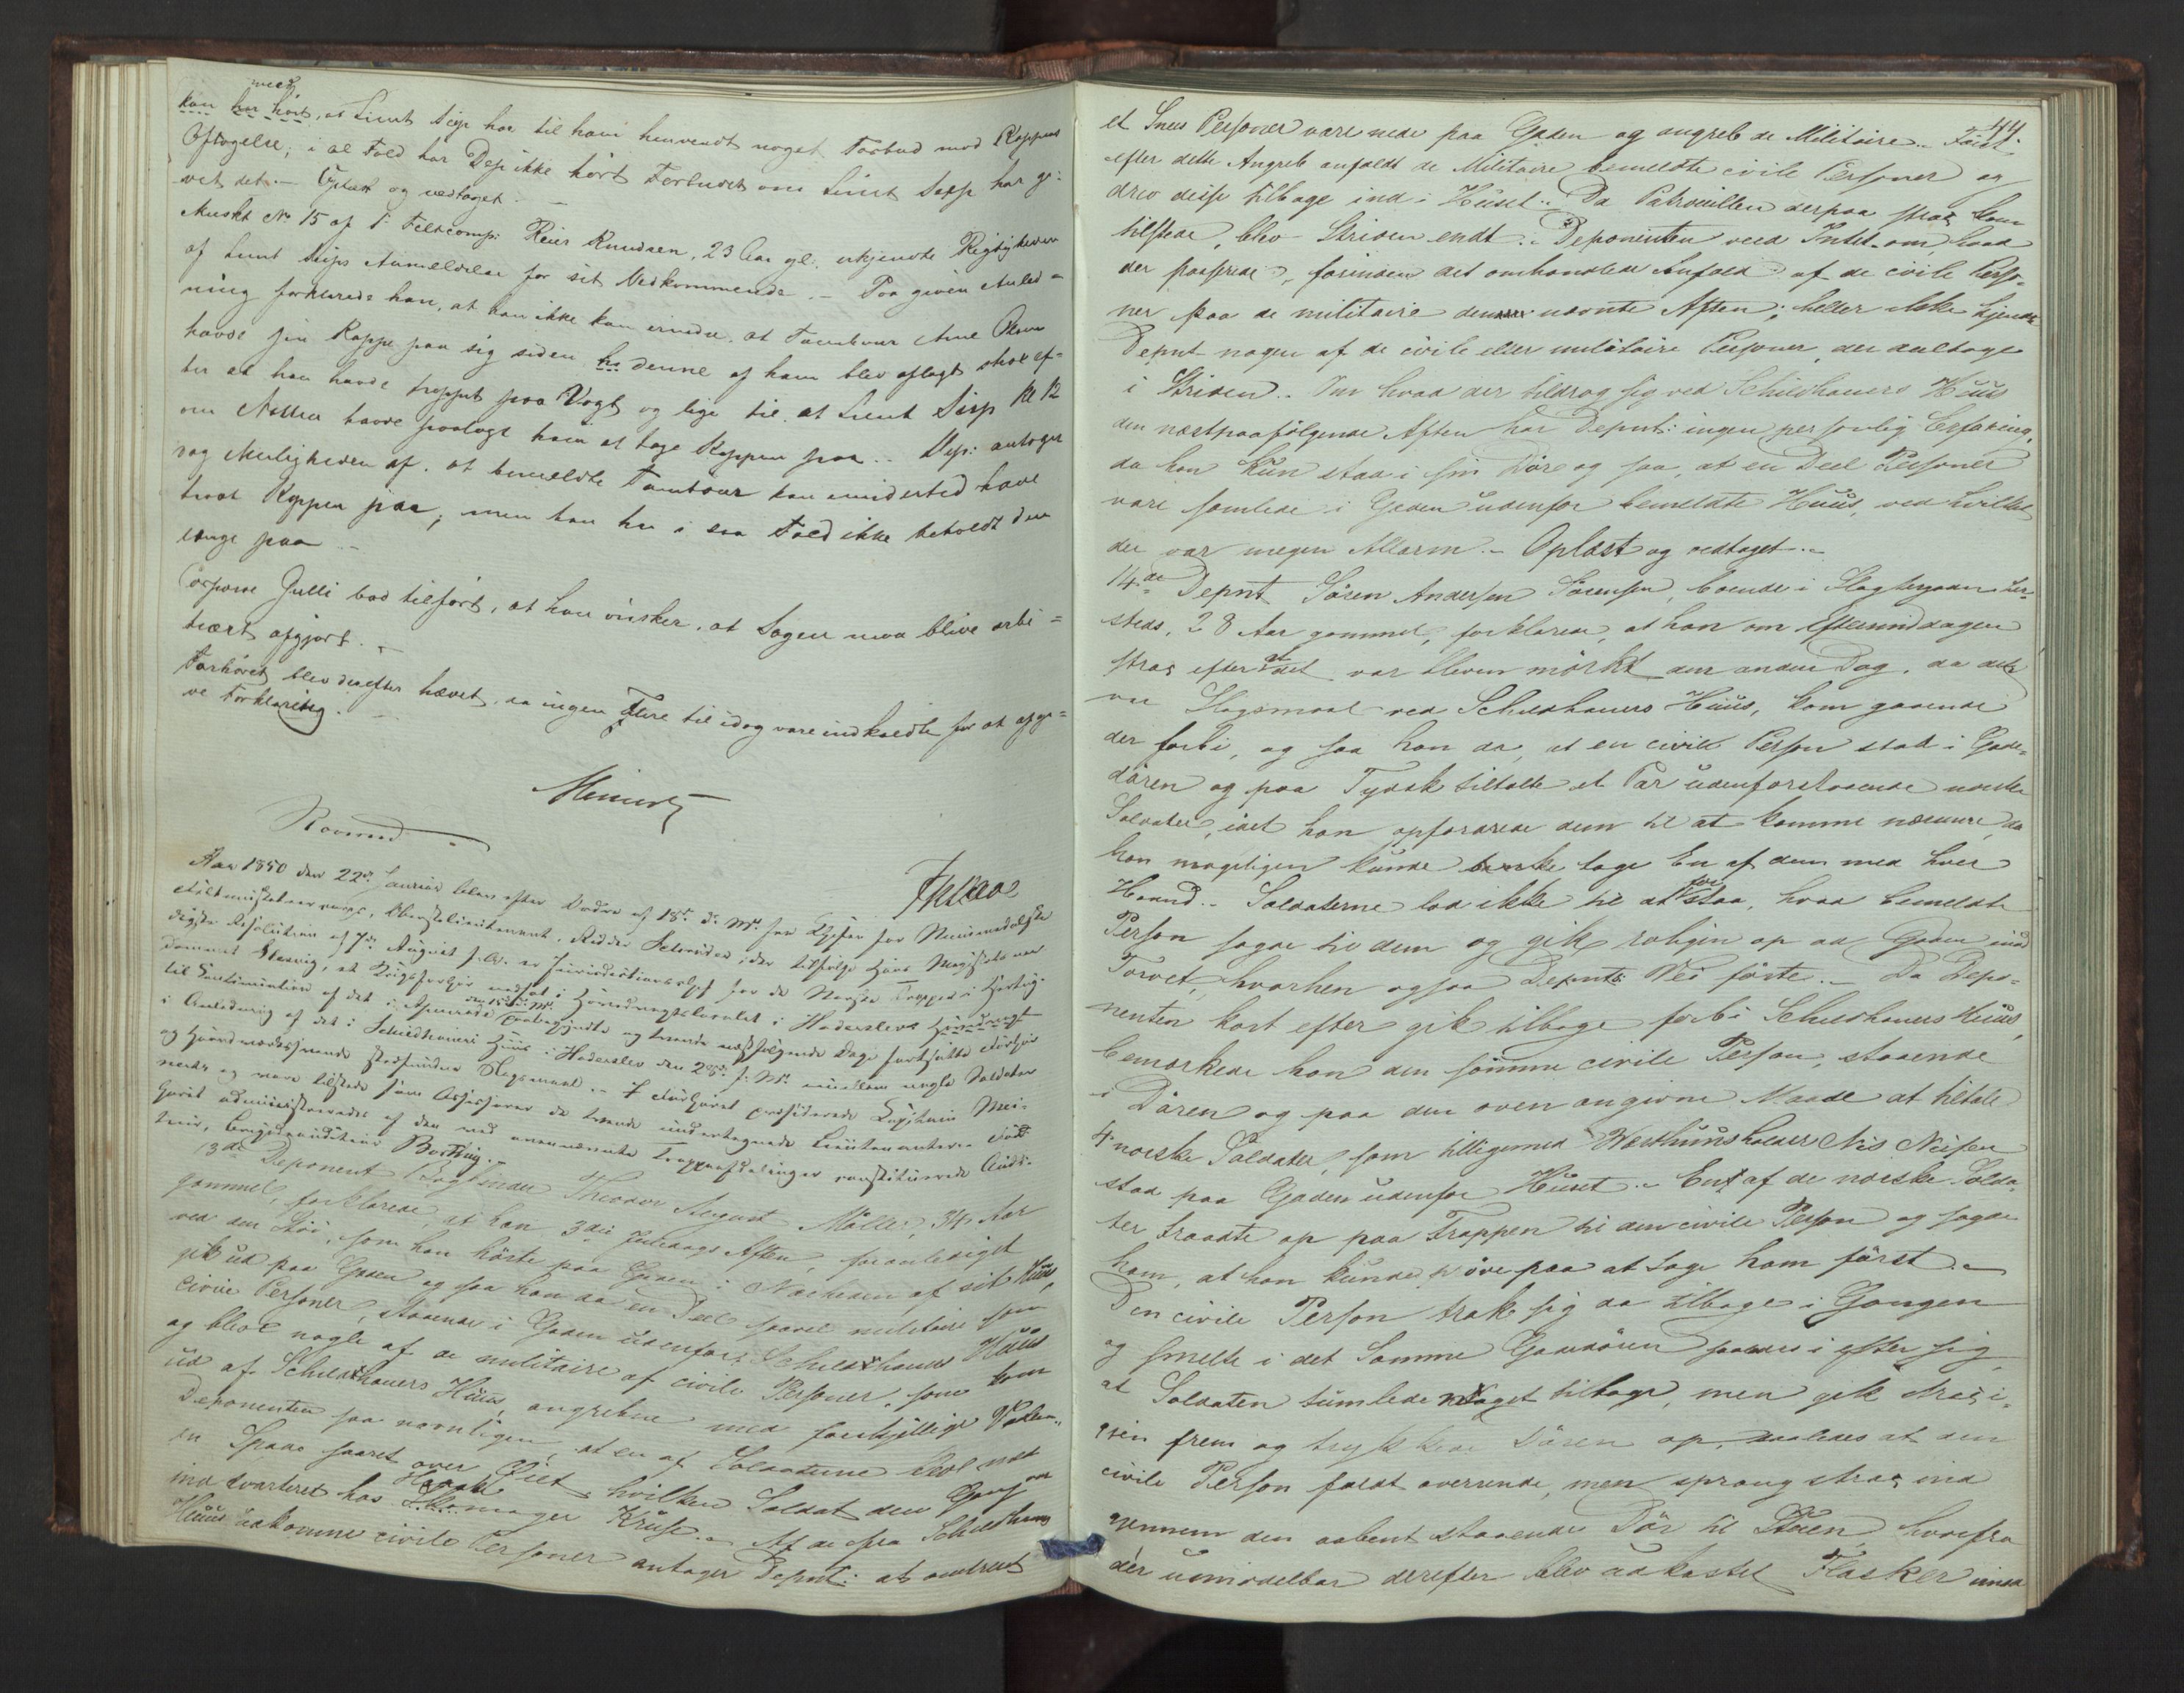 med
kan har hört, at Lieut Sejp har til ham henvendt noget Forbud mod Kappens
Aftagelse; i al Fald har Dep: ikke hört Forbudet om Lieut Sejp har gi-
vet det. – Oplæst og vedtaget. –
Muskt No 15 af 1ste Feltcomp: Reier Knudsen, 23 Aar gl. erkjendte Rigtigheden
af Lieut Sejps Anmeldelse for sit Vedkommende. – Paa given Anled-
ning forklarede han, at han ikke kan erindre, at Tambour Arne Olsen
havde sin Kappe paa sig siden ha denne af ham blev aflagt strax ef-
ter at han havde troppet paa Vagt og lige til at Lieut Sejp Kl 12
om Natten havde paalagt ham at tage Kappen paa. – Dep: antager
dog Muligheden af, at bemeldte Tambour kan imidlertid have
havt Kappen paa, men han har i saa Fald ikke beholdt den
længe paa. –
Corporal Gulli bad tilfört, at han önsker, at Sagen maa blive arbi-
trært afgjort. –
Forhöret blev derefter hævet, da ingen Flere til idag vare indkaldte for at afgi-
ve Forklaring. –
Aar 1850 den 22de Januar blev efter Ordre af 18de ds. Mts. fra Chefen for
Oberstlieutenant, Ridder Schröder, der ifölge Hans Majestæts
Resolution af 7de August f. A. er Jurisdictionschef for de Norske Tropper i Hertug-
dömmet Slesvig, et Krigsforhör nedsat i Hovedvagtslocalet i Haderslevs Hovedvagt
den 15de ds. Mts.
til Continuation af det i Apenrade paabegyndte og tvende næstfölgende Dage fortsatte Forhör
i Anledning af det i Schildhauers Huus i Haderslev den 25de f. M. imellem nogle Soldater
og Haandværkssvende stedfundne Slagsmaal. – I Forhöret præsiderede Capitain Mei-
nertz og vare tilstede som Assessorer de tvende undertegnede Lieutenanter. – For-
höret administreredes af den ved ovennævnte Troppeafdelinger constituerede Audi-
teur, Brigadeauditeur Borthig. –
13de Deponent Bogbinder Theodor August Möller, 34 Aar
gammel, forklarede, at han 3die Juledags Aften, foranlediget
ved den Stöi, som han hörte paa Gaden i Nærheden af sit Huus,
gik ud paa Gaden og saa han da en Deel saavel militaire som
civile Personer, staaende i Gaden udenfor Schildhauers Huus
og blev nogle af de militaire af civile Personer, som kom
ud af Schildhauers Huus, angrebne med forskjellige Vaaben.
Deponenten saa navnligen, at en af Soldaterne blev med
en Spade saaret over Öiet, hvilken Soldat den Gang var
indkvarteret hos Skomager Kruse. – At de fra Schildhauers
Huus udkomne civile Personer antager Depnt: at omtrent
44.
et Snees Personer vare nede paa Gaden og angreb de Militaire. – Först
efter dette Angreb anfaldt de Militaire bemeldte civile Personer og
drev disse tilbage ind i Huset. – Da Patrouillen derpaa strax kom
tilstede, blev Striden endt. – Deponenten veed Intet om, hvad
der passerede, forinden det omhandlede Anfald af de civile Perso-
ner paa de militaire den nævnte Aften; heller ikke kjender
Depnt nogen af de civile eller militaire Personer, der deeltoge
i Striden. – Om hvad der tildrog sig ved Schildhauers Huus
den næstpaafölgende Aften har Depnt: ingen personlig Erfaring,
da han kun stod i sin Dör og saa, at en Deel Personer
vare samlede i Gaden udenfor bemeldte Huus, ved hvilket
der var megen Allarm. – Oplæst og vedtaget. –
14de Depnt Sören Andersen Sörensen, boende i Slagtergaden her-
steds, 28 Aar gammel, forklarede, at han om Eftermiddagen
strax efter at det var bleven mörkt den anden Dag, da der
var Slagsmaal ved Schildhauers Huus, kom gaaende
der forbi, og saa han da, at en civil Person stod i Gade-
dören og paa Tydsk tiltalte et Par udenforstaaende norske
Soldater, idet han opfordrede dem til at komme nærmere, da
han mageligen kunde tage En af dem med hver
Haand. – Soldaterne lod ikke til at forstaa, hvad bemeldte
Person sagde til dem og gik roligen op ad Gaden imod
Torvet, hvorhen ogsaa Depnts Vei förte. – Da Depo-
nenten kort efter gik tilbage forbi Schildhauers Huus,
bemærkede han den samme civile Person, staaende
i Dören og paa den oven angivne Maade at tiltale
4 norske Soldater, som tilligemed Værthuusholder Nis Nissen
stod paa Gaden udenfor Huset. – En af de norske Solda-
ter traadte op paa Trappen til den civile Person og sagde
ham, at han kunde pröve paa at tage ham först. –
Den civile Person trak sig da tilbage i Gangen
og smelte i det Samme Gadedören saaledes i efter sig,
at Soldaten tumlede noget tilbage, men gik strax i-
gjen frem og trykkede Dören op, saaledes at den
civile Person faldt overende, men sprang strax ind
gjennem den aabent staaende Dör til Stuen, hvorfra
der umiddelbar derefter blev udkastet Flasker imod